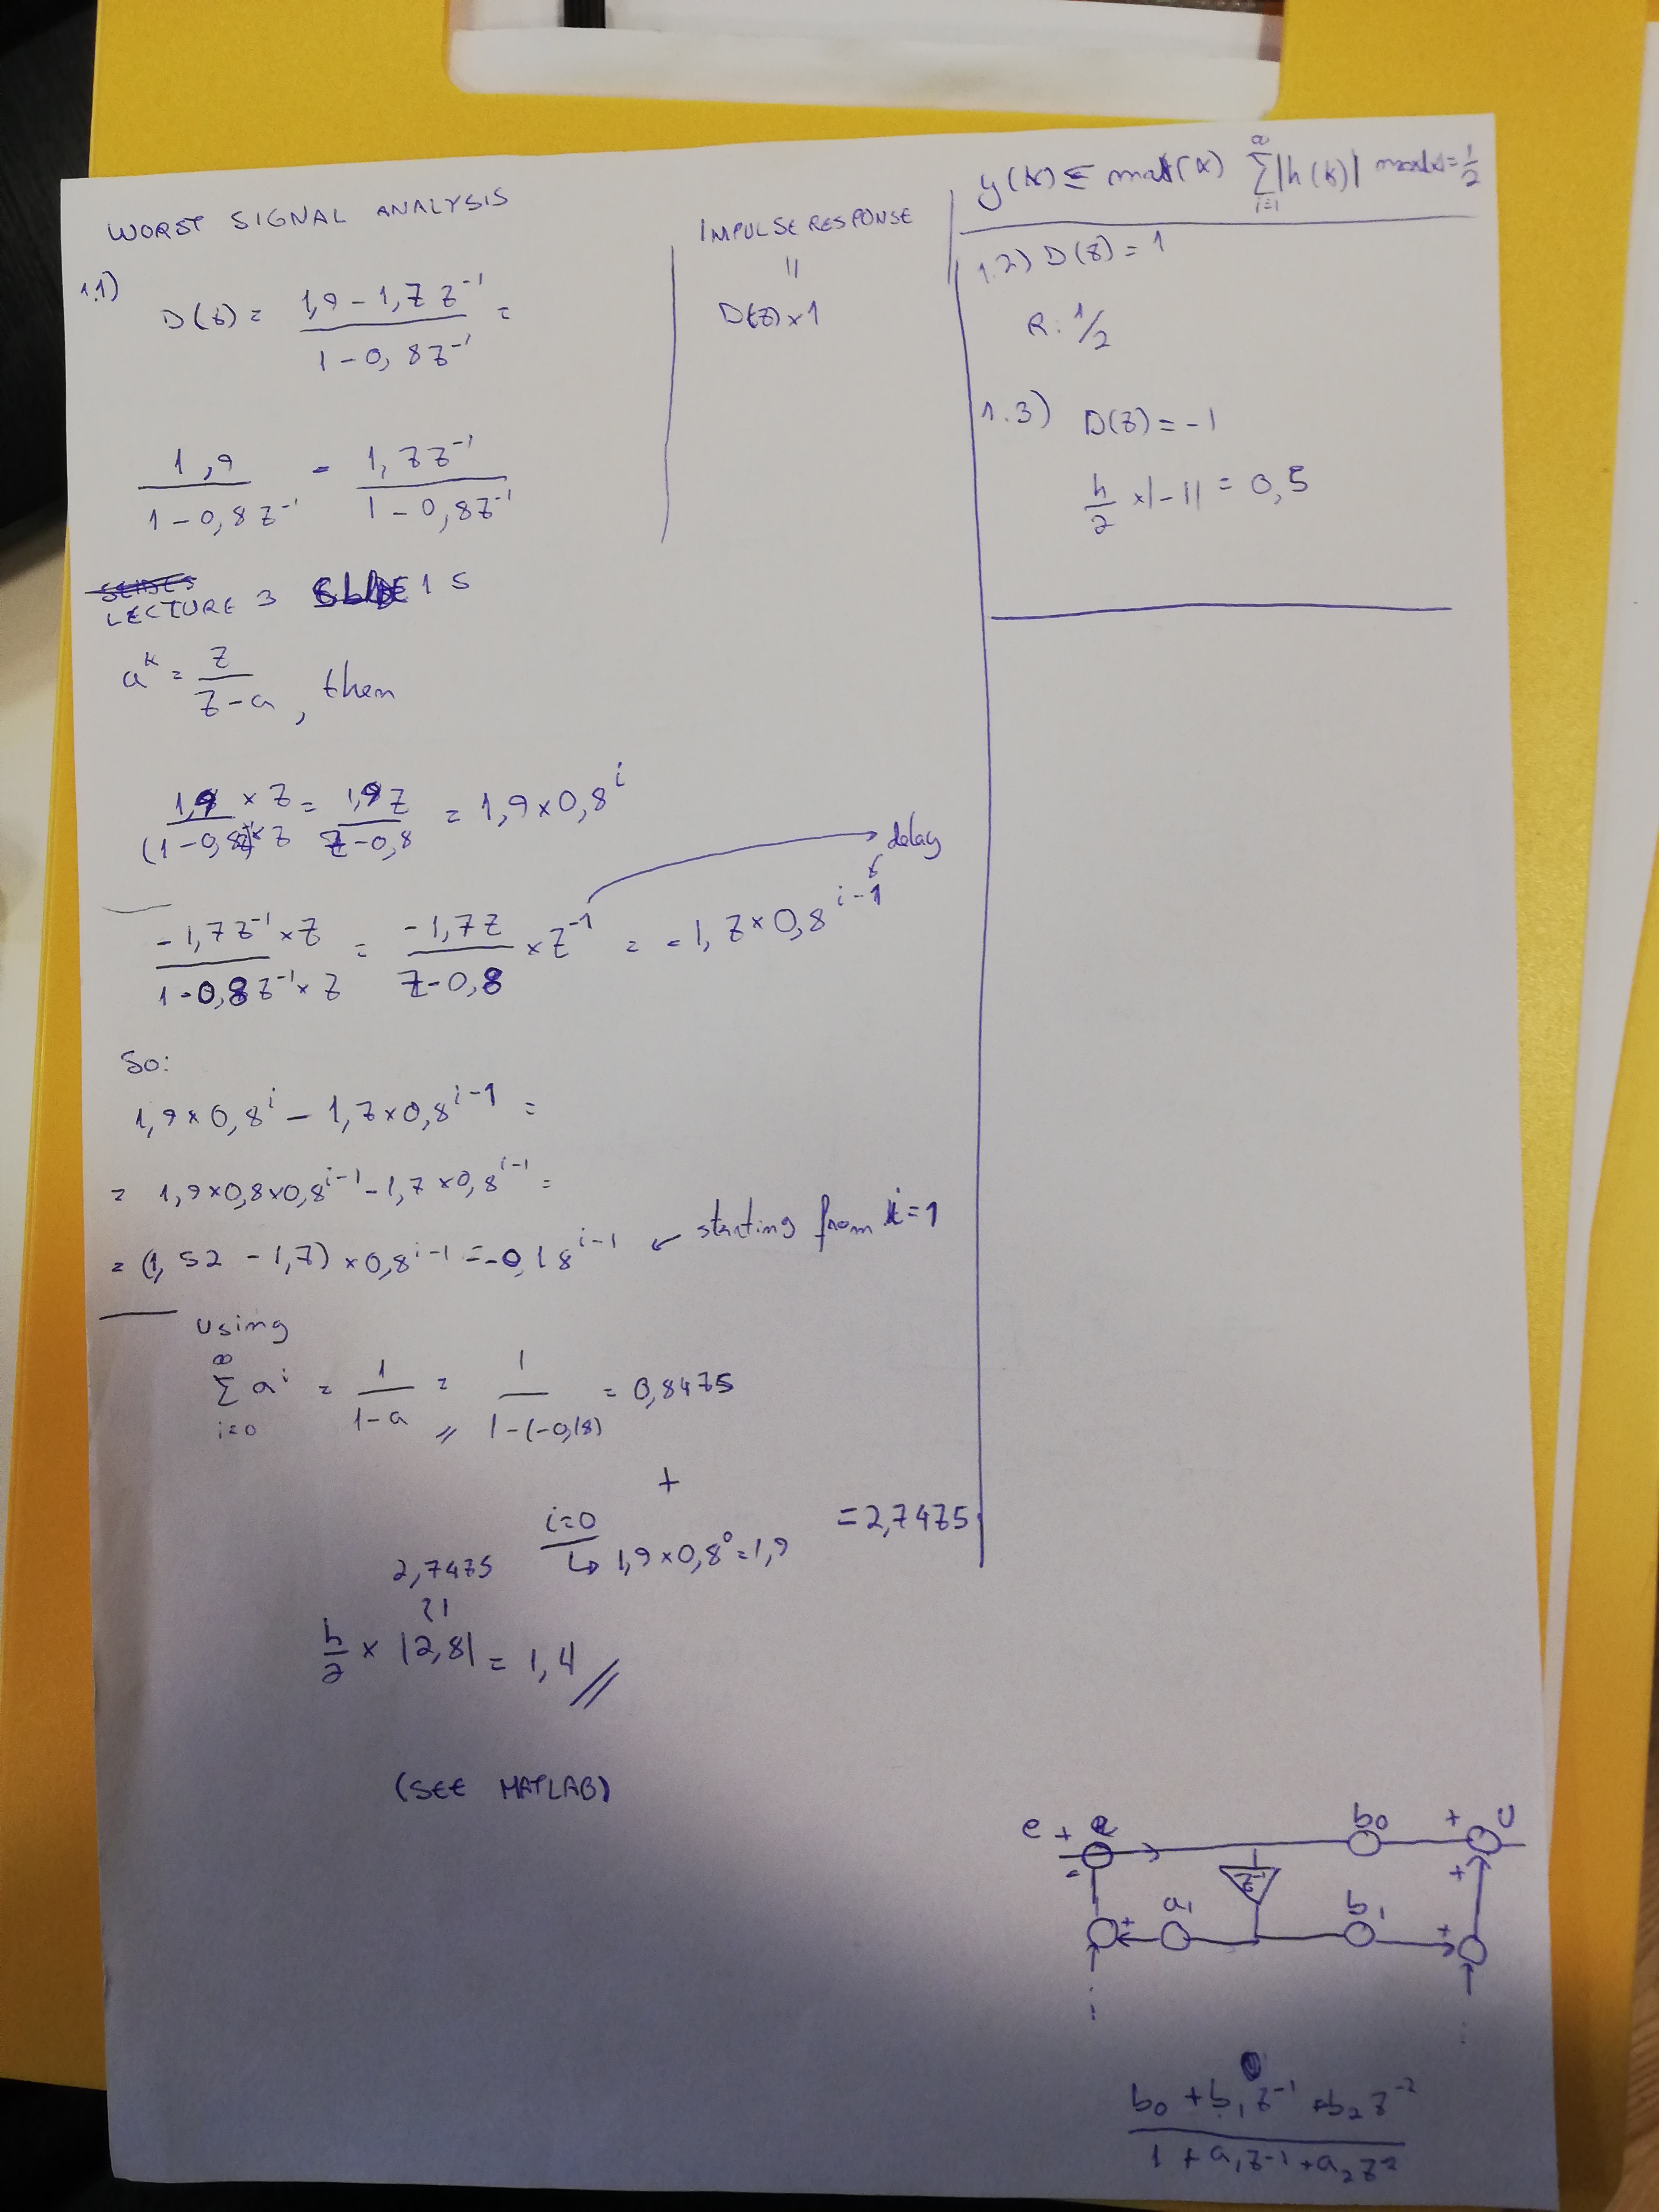 WORST SIGNAL ANALYSIS
1.1)
D(z) = (1,9 - 1,7 z^-1) / (1 - 0,8 z^-1) =
1,9 / (1 - 0,8 z^-1) - 1,7 z^-1 / (1 - 0,8 z^-1)
LECTURE 3 SLIDE 15
a^k = z / (z - a), then
(1,9 × z) / ((1 - 0,8 z^-1) × z) = 1,9 z / (z - 0,8) = 1,9 × 0,8^i
delay
(-1,7 z^-1 × z) / (1 - 0,8 z^-1 × z) = (-1,7 z) / (z - 0,8) × z^-1 = -1,7 × 0,8^(i-1)
So:
1,9 × 0,8^i - 1,7 × 0,8^(i-1) =
= 1,9 × 0,8 × 0,8^(i-1) - 1,7 × 0,8^(i-1) =
= (1,52 - 1,7) × 0,8^(i-1) = -0,18^(i-1) ← starting from i=1
using
∑_{i=0}^{∞} a^i = 1 / (1 - a) = 1 / (1 - (-0,18)) = 0,8475
+
i=0
↳ 1,9 × 0,8^0 = 1,9
= 2,7475
2,7475
h/2 × |2,8| = 1,4 //
(SEE MATLAB)
IMPULSE RESPONSE
=
D(z) × 1
y(k) ≤ max(x) ∑_{i=1}^{∞} |h(k)| max(x) = 1/2
1.2) D(z) = 1
R: 1/2
1.3) D(z) = -1
h/2 × |-1| = 0,5
e + b0 + U
- z^-1 +
+ a1 b1 +
(b0 + b1 z^-1 + b2 z^-2) / (1 + a1 z^-1 + a2 z^2)